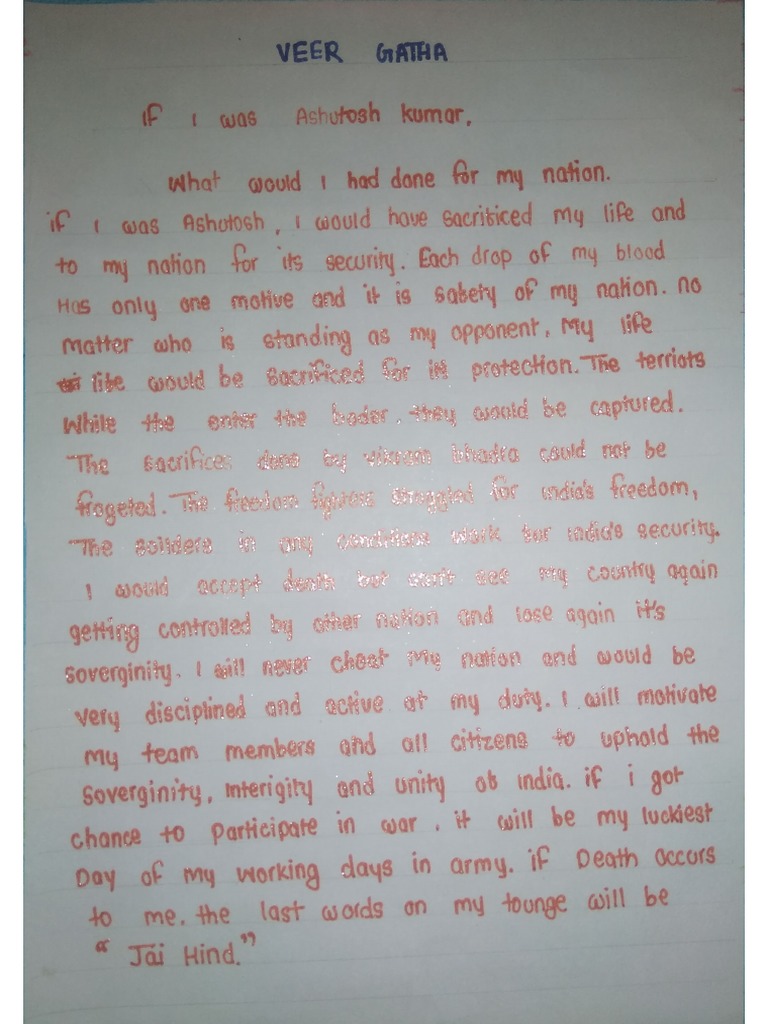 VEER GATHA
If I was Ashutosh Kumar,
What would I had done for my nation.
if I was Ashutosh, I would have sacrificed my life and
to my nation for its security. Each drop of my blood
Has only one motive and it is safety of my nation. no
matter who is standing as my opponent. My life
life would be sacrificed for its protection. The terriots
While the enter the boder, they would be captured.
The sacrifices done by vikram bhadra could not be
frogeted. The freedom fighters struggled for india's freedom,
The soilders in any conditions work for india's security.
I would accept death but can't see my country again
getting controlled by other nation and lose again it's
soverginity. I will never cheat my nation and would be
very disciplined and active at my duty. I will motivate
my team members and all citizens to uphold the
soverginity, interigity and unity of india. if i got
chance to participate in war, it will be my luckiest
Day of my working days in army. if Death occurs
to me. the last words on my tounge will be
"Jai Hind."